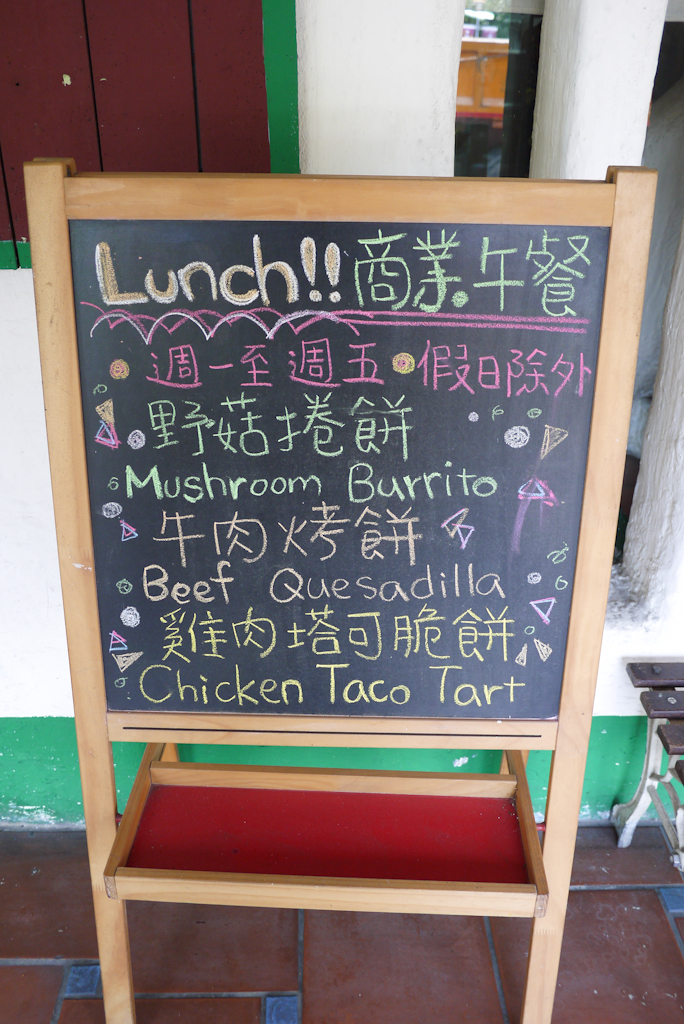 Lunch!! 商業午餐
週一至週五 假日除外
野菇捲餅
Mushroom Burrito
牛肉烤餅
Beef Quesadilla
雞肉塔可脆餅
Chicken Taco Tart